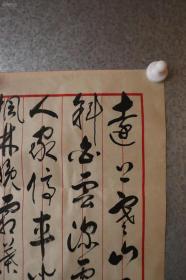 遠上寒山石
斜白雲深處
人家停車坐
楓林晚霜葉